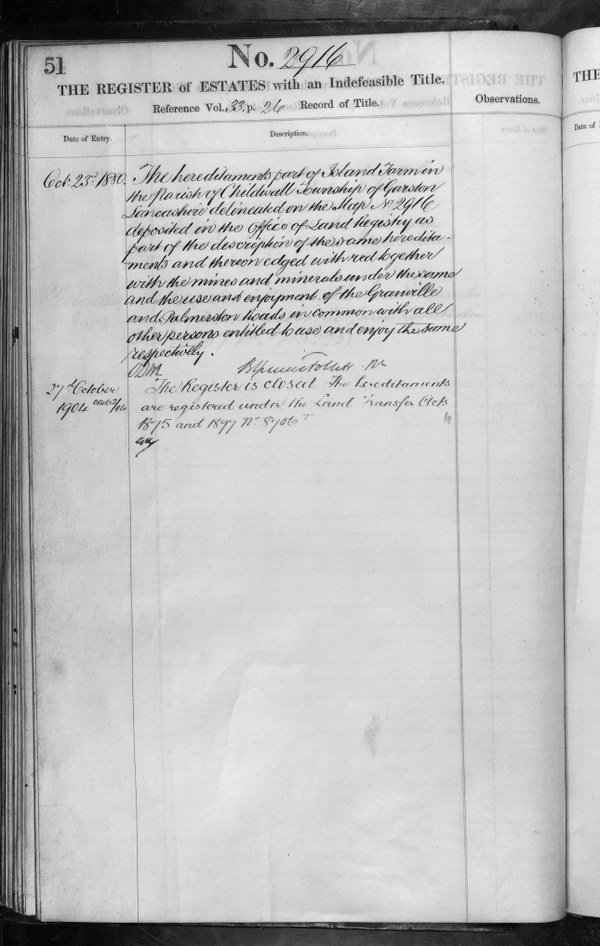 51
No. 2916
THE REGISTER of ESTATES with an Indefeasible Title.
Reference Vol. 33. p. 26 Record of Title.
Observations.
Date of Entry.
Description.
Oct. 23rd 1880.
The hereditaments part of Island Farm in
the Parish of Childwall Township of Garston
Lancashire delineated on the Map No 2916
deposited in the Office of Land Registry as
part of the description of the same heredita-
ments and thereon edged with red together
with the mines and minerals under the same
and the use and enjoyment of the Granville
and Palmerston Roads in common with all
other persons entitled to use and enjoy the same
respectively.
27th October
1904
The Register is closed The hereditaments
are registered under the Land Transfer Acts
1875 and 1897 No 8706
THE
Date of